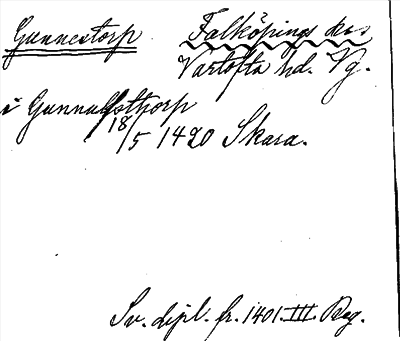 Gunnestorp Falköpings ksn
Vartofta hd. Vg.
i Gunnulfsthorp
18/5 1420 Skara.
Sv. dipl. fr. 1401. III. Reg.